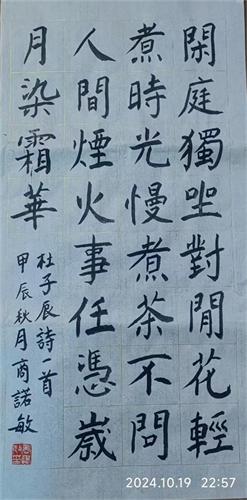 閑庭獨坐對閒花輕
煮時光慢煮茶不問
人間煙火事任憑歲
月染霜華
杜子辰詩一首
甲辰秋月商諾敏
2024.10.19 22:57